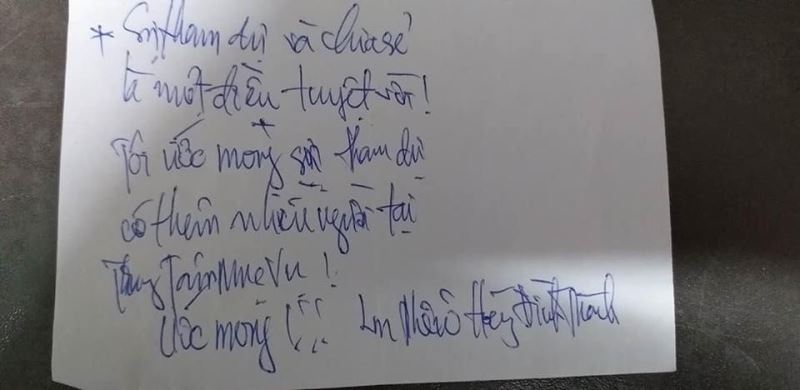 * Sự tham dự và chia sẻ
là một điều tuyệt vời!
Tôi ước mong sự tham dự
có thêm nhiều người tại
Trung Tâm Mục Vụ!
Ước mong! Lm Đình Thành